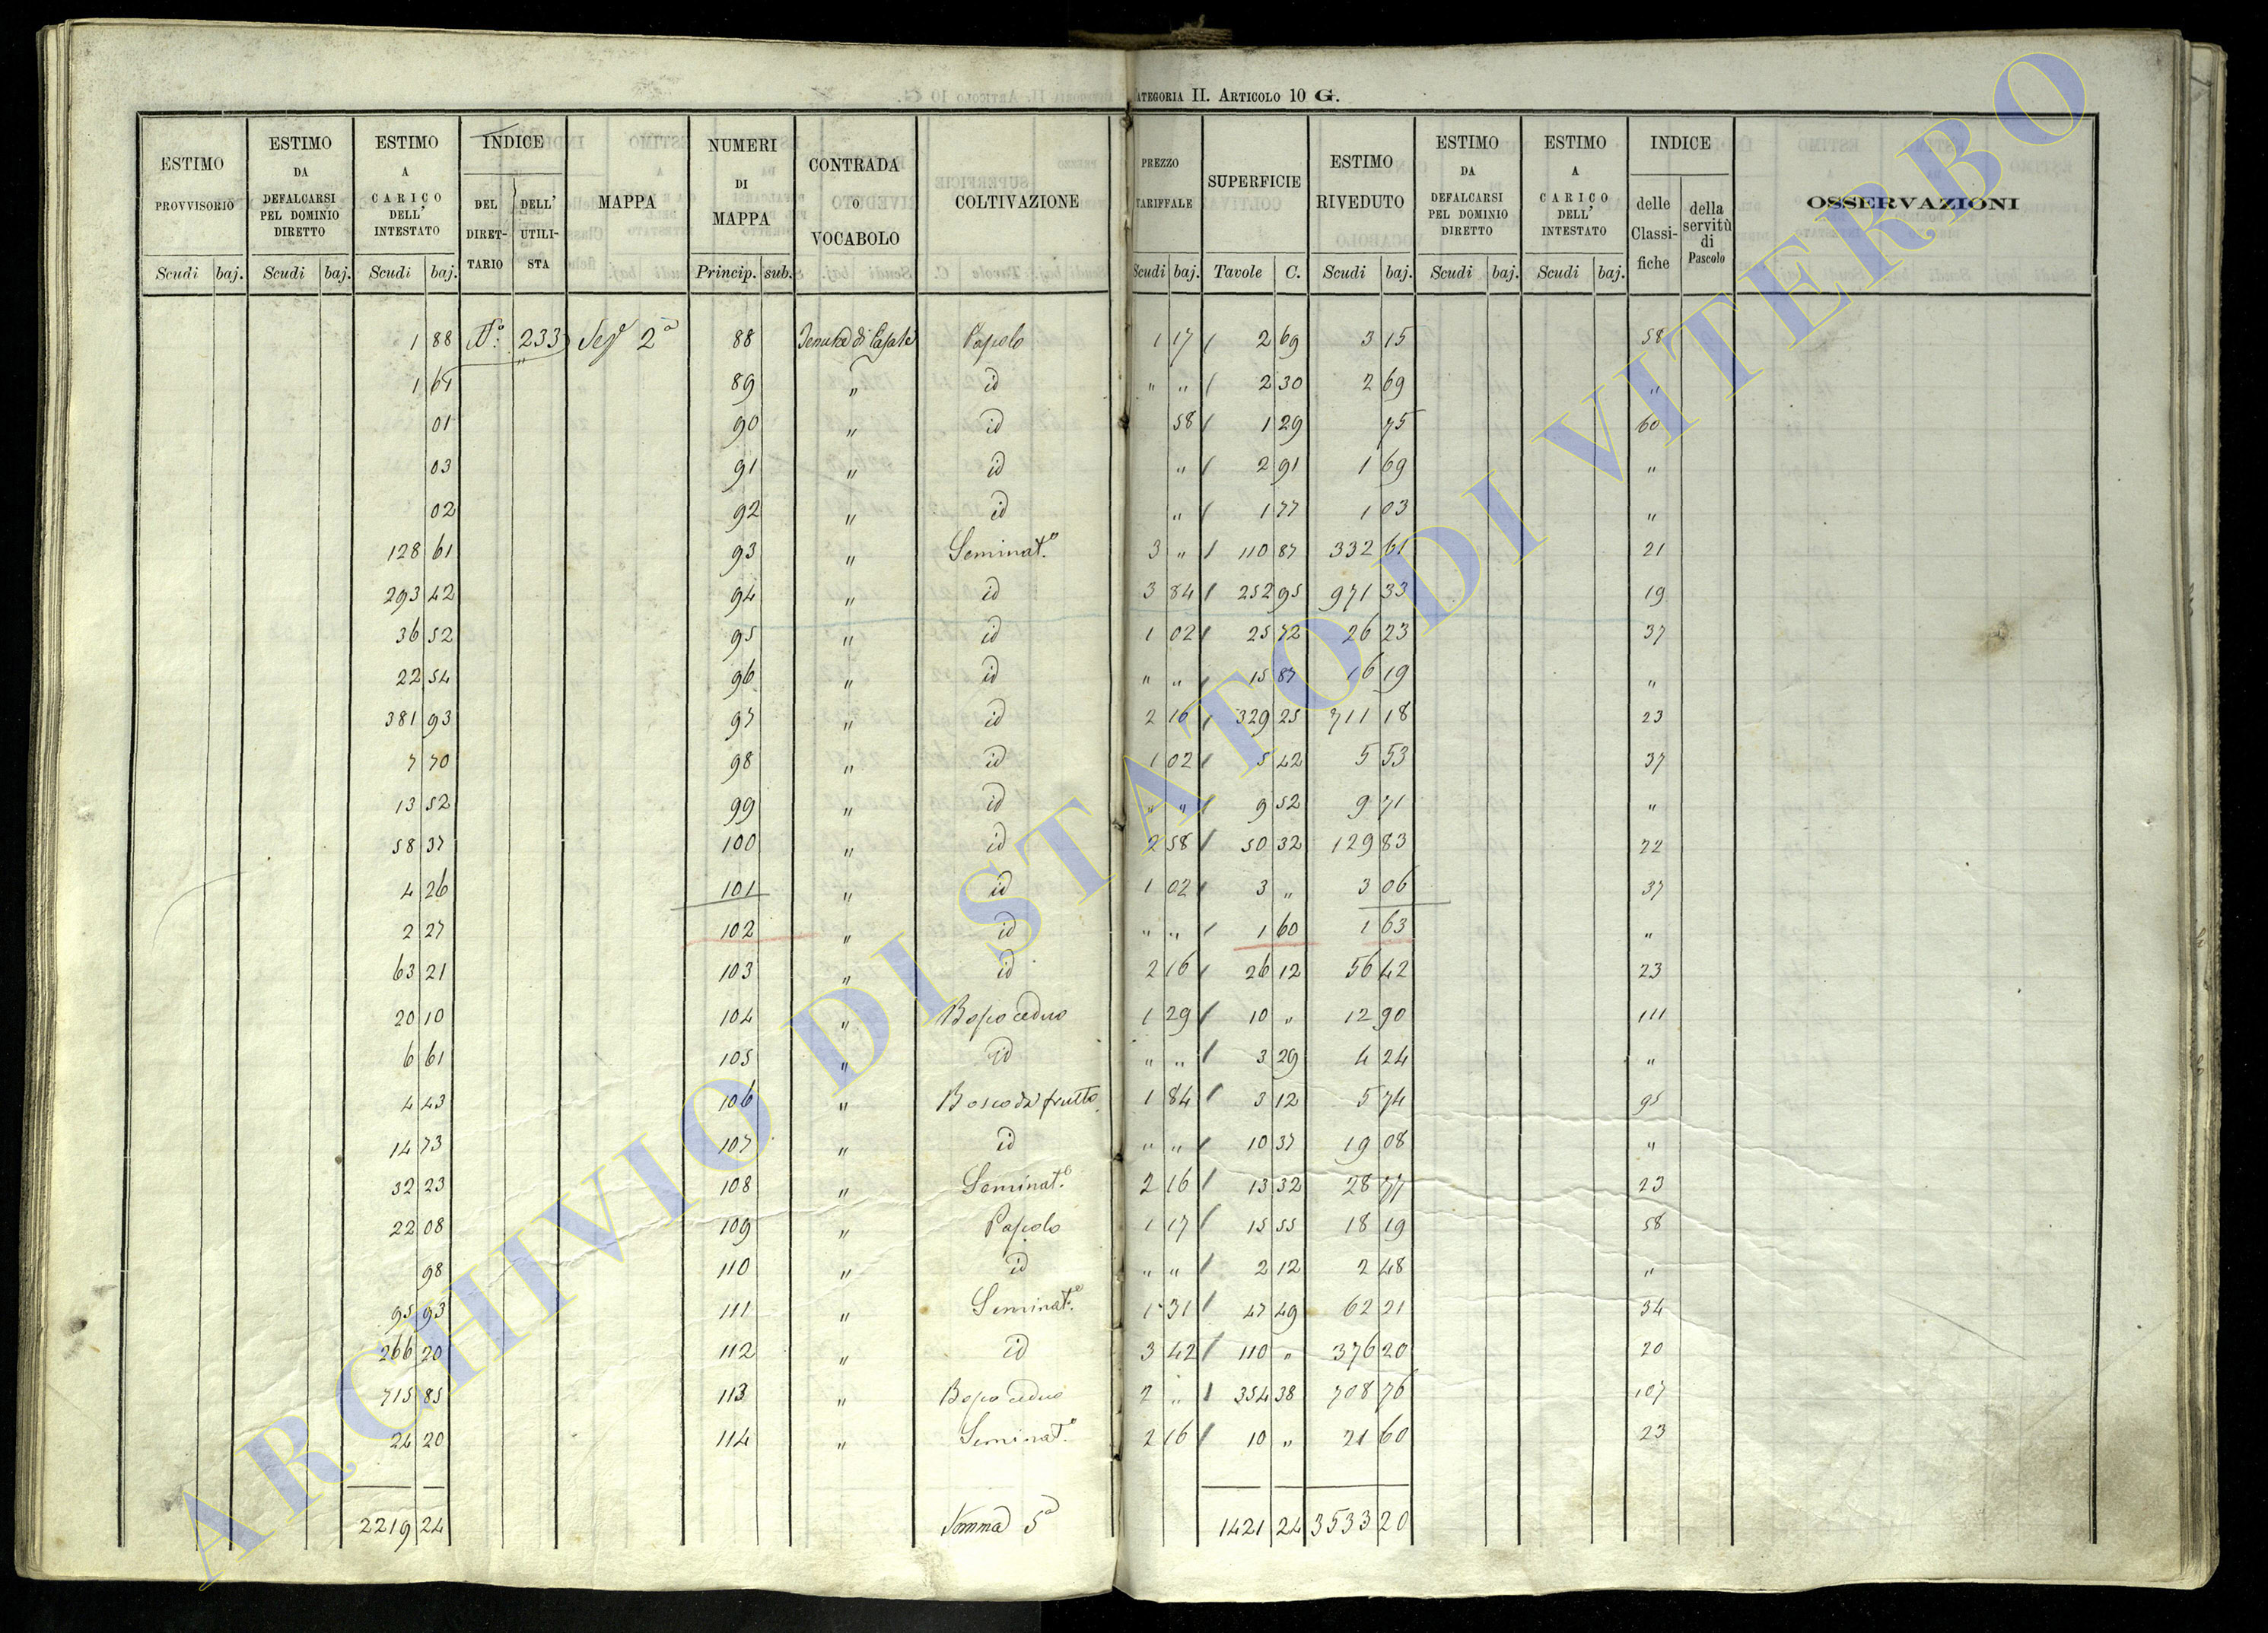 CATEGORIA II. ARTICOLO 10 G.
ESTIMO PROVVISORIO | ESTIMO DA DEFALCARSI PEL DOMINIO DIRETTO | ESTIMO A CARICO DELL' INTESTATO | INDICE DEL DIRETTARIO | DELL' UTILISTA | MAPPA | NUMERI DI MAPPA | CONTRADA O VOCABOLO | COLTIVAZIONE | PREZZO TARIFFALE | SUPERFICIE | ESTIMO RIVEDUTO | ESTIMO DA DEFALCARSI PEL DOMINIO DIRETTO | ESTIMO A CARICO DELL' INTESTATO | INDICE delle Classifiche | della servitù di Pascolo | OSSERVAZIONI
Scudi baj. | Scudi baj. | Scudi baj. | Princip. sub. | Scudi baj. | Tavole C. | Scudi baj. | Scudi baj. | Scudi baj.
1 88 N.° 233 Sez 2a 88 Tenuta di Casale Pascolo 1 17 2 69 3 15 58
1 61 89 " id " " 2 30 2 69 "
01 90 " id 58 1 29 75 60
03 91 " id " 2 91 1 69 "
02 92 " id " 1 77 1 03 "
128 61 93 " Seminat.o 3 " 110 87 332 61 21
293 42 94 " id 3 84 252 95 971 33 19
36 52 95 " id 1 02 25 72 26 23 37
22 54 96 " id " " 15 87 16 19 "
381 93 97 " id 2 16 329 25 711 18 23
7 70 98 " id 1 02 5 42 5 53 37
13 52 99 " id " " 9 52 9 71 "
58 37 100 " id 2 58 50 32 129 83 22
4 26 101 " id 1 02 3 " 3 06 37
2 27 102 " id " " 1 60 1 63 "
63 21 103 " id 2 16 26 12 56 42 23
20 10 104 " Bosco ceduo 1 29 10 " 12 90 111
6 61 105 " id " " 3 29 4 24 "
4 43 106 " Bosco da frutto 1 84 3 12 5 74 95
14 73 107 " id " " 10 37 19 08 "
32 23 108 " Seminat.o 2 16 13 32 28 77 23
22 08 109 " Pascolo 1 17 15 55 18 19 58
98 110 " id " " 2 12 2 48 "
95 93 111 " Seminat.o 1 31 47 49 62 21 34
266 20 112 " id 3 42 110 " 376 20 20
715 85 113 " Bosco ceduo 2 " 354 38 708 76 107
24 20 114 " Seminat.o 2 16 10 " 21 60 23
2219 24 Somma 5a 1421 24 3533 20
ARCHIVIO DI STATO DI VITERBO